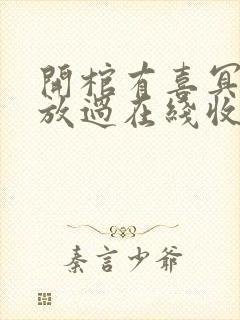 開棺有喜冥
放過在綫收
秦言少爺